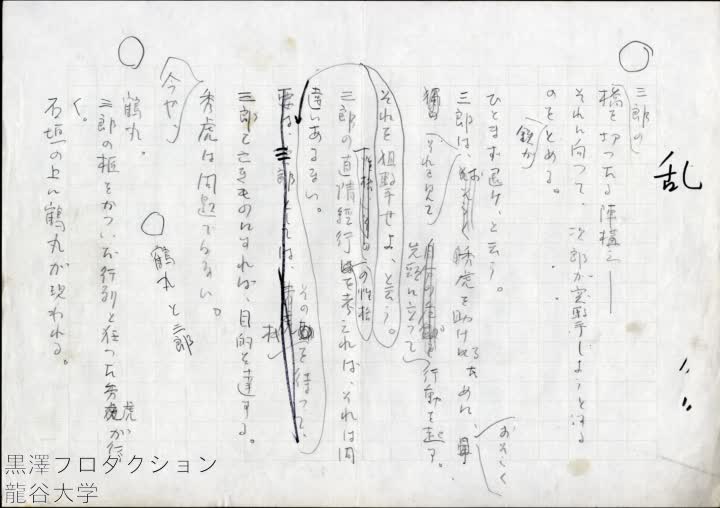 乱
三郎の
橋を切つた陣構え——
それに向つて、次郎が突撃しようとする
のをとめる。
鉄が
ひとまず退け、と云う。
三郎は、秀虎を助けるために、
おそらく
それを見て
先頭に立って
行動を起す。
それを狙撃せよ、と云う。
の性格
三郎の直情径行を考えれば、それは間
違いあるまい。
その
を待って、
要は、
三郎を亡きものにすれば、目的を達する。
秀虎は問題でない。
今や、
鶴丸と三郎
鶴丸。
三郎の柩をかついだ行列と狂つた秀虎が行
く。
石垣の上に鶴丸が現われる。
黒澤プロダクション
龍谷大学